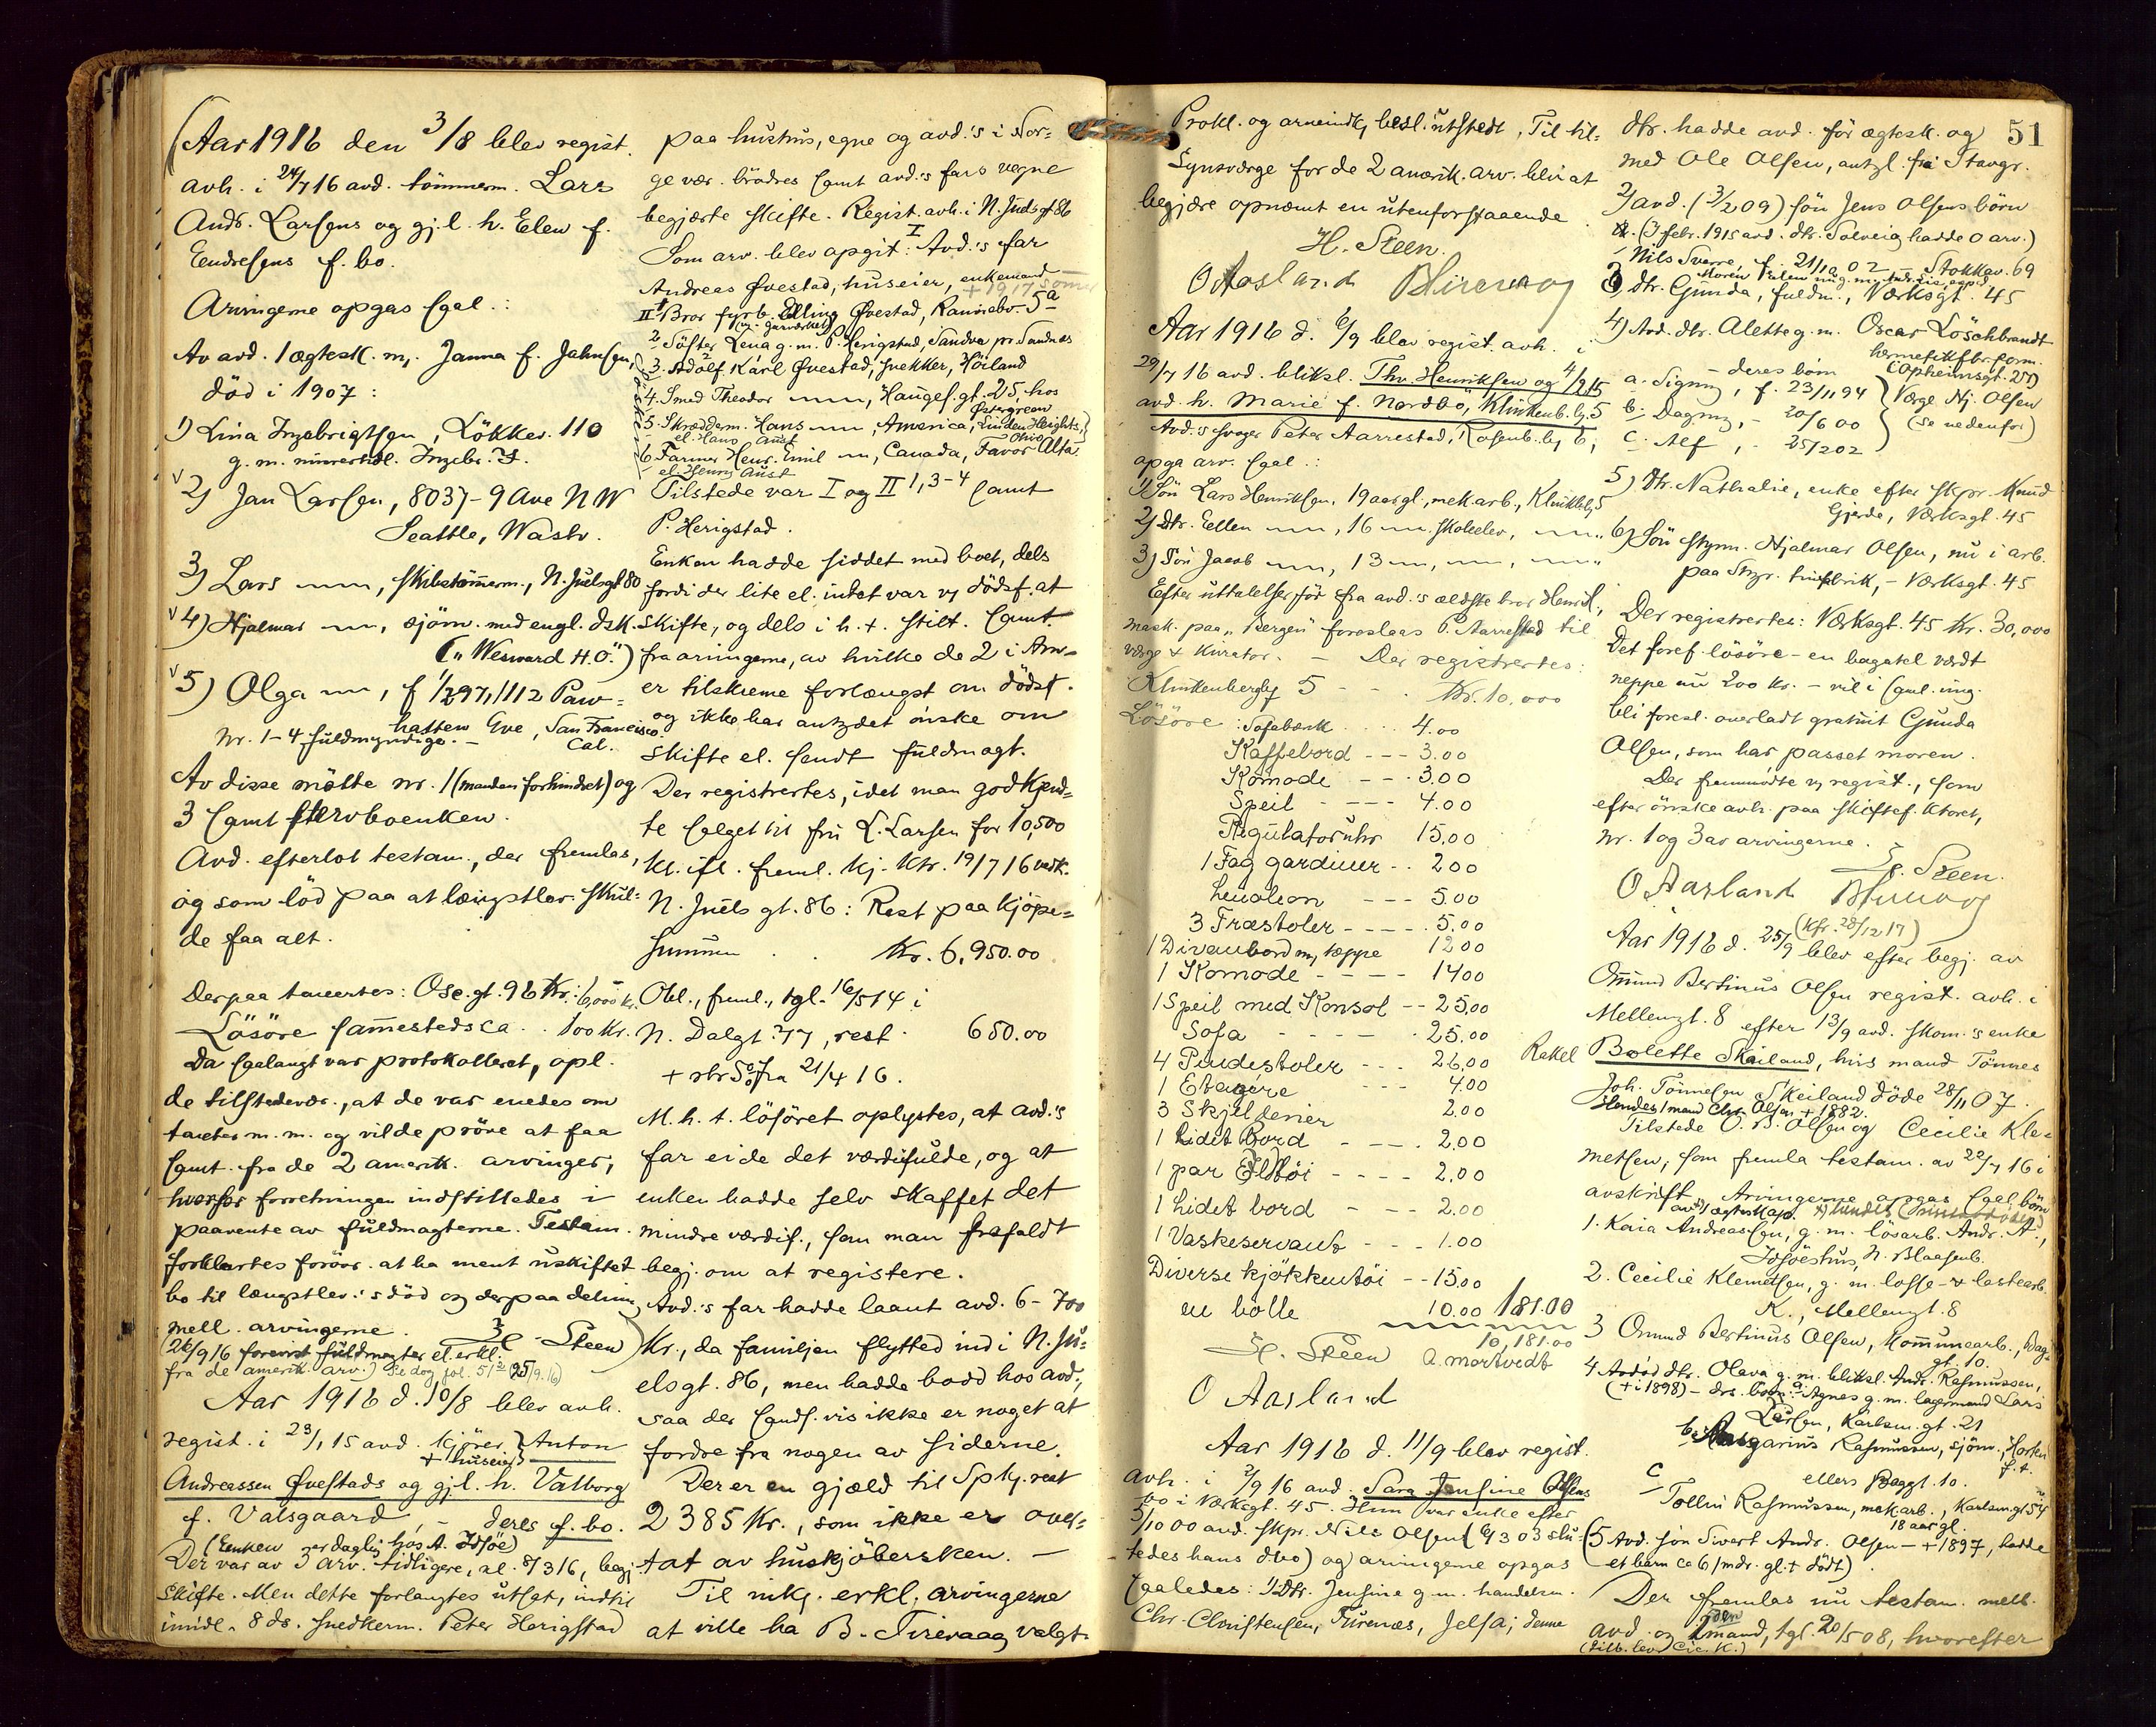 (Aar 1916 den 3/8 blev regist.
avh. i 24/7 16 avd. tömmerm. Lars
Andr. Larsens og gj.l. h. Elen f.
Endresens f. bo.
Arvingerne opgas saal.:
Av avd. 1 ægtesk. m. Janna f. Jahnsen,
död i 1907:
1) Lina Ingebrigtsen, Lökkev. 110
g. m. Ingebr. I.
2) Jan Larsen, 8037-9 Ave NW
Seattle, Wash.
3) Lars — , skibstömmerm., N. Juelsgt 80
4) Hjalmar — , sjöm. med engl. dsk.
("Wesward H.O.")
5) Olga — , f. 1/2 97, 1112 Paw-
hatten Eve, San Francisco
Cal.
Nr. 1-4 fuldmyndige. —
Av disse mötte nr. 1 (manden forhindret) og
3 samt stervboenken.
Avd. efterlot testam., der fremlas,
og som löd paa at længstlev. skul-
de faa alt.
Derpaa taxertes: Ose.gt. 96 Kr.: 6,000 kr.
Lösöre sammesteds ca. . 100 Kr.
Da saalangt var protokolleret, opl.
de tilstedevær., at de var enedes om
taxter m.m. og vilde pröve at faa
samt. fra de 2 amerik. arvinger,
hvorfor forretningen indstilledes i
paavente av fuldmagterne. Testam.
forklartes forövr. at ha ment uskiftet
bo til længstlev.'s död og derpaa deling
mell. arvingerne.
H. Steen)
(26/9 16 forevist fuldmagter el. erkl.
fra de amerik. arv.) Se dog fol. 51/2 (25/9.16)
Aar 1916 d. 10/8 blev avh.
regist. i 23/1 15 avd. kjörer + huseier Anton
Andreassen Øvestads og gjl. h. Valborg
f. Valsgaard, - deres f. bo.
(Enken er daglig hos A. Idsöe)
Der var av 3 arv. tidligere, al. 8/3 16, begj.
skifte. Men dette forlangtes utsat, indtil
imidl. 8 ds. snedkerm. Peter Herigstad
paa hustrus, egne og avd.'s i Nor-
ge vær. brödres samt avd.'s fars vegne
begjærte skifte. Regist. avh. i N. Juelsgt 86
Som arv. blev opgit: I Avd.'s far
Andreas Øvestad, huseier, enkemand —
+ 1917 sommer
II 1 Bror fyrb. Elling Øvestad, Rannebv. 5a
2 Söster Lena g. m. P. Herigstad, Sandve pr. Sandnes
3. Adolf Karl Øvestad, snekker, Höiland
4. Smed Theodor — , Hauges.gt. 25, hos
Østergreen
5. Skrædderm. Hans — , America, Linden Heights,
el. Hans Aust Ohio
6 Farmer Henr. Emil — , Canada, Favor Alta
el. Henry Aust
Tilstede var I og II 1, 3-4 samt
P. Herigstad.
Enken hadde siddet med boet, dels
fordi der lite el. intet var v. dödsf. at
skifte, og dels i h. t. stilt. samt.
fra arvingerne, av hvilke de 2 i Am-
er. tilskreve forlængst om dödsf.
og ikke har antydet önske om
skifte el. sendt fuldmagt.
Der registrertes, idet man godkjend-
te salget til fru L. Larsen for 10,500
kr. ifl. freml. kj. ktr. 19/7 16 vedk.
N. Juels gt. 86: Rest paa kjöpe-
summen . . Kr. 6,950.00
Obl., freml., tgl. 16/5 14 i
N. Dalgt. 77, rest . 650.00
+ rtr 5% fra 21/4 16.
M. h. t. lösöret oplystes, at avd.'s
far eide det værdifulde, og at
enken hadde selv skaffet det
mindre værdif., som man frafaldt
begj. om at registere.
Avd.'s far hadde laant avd. 6-700
Kr., da familjen flytted ind i N. Ju-
elsgt. 86, men hadde bodd hos avd.,
saa der sands.vis ikke er noget at
fordre fra nogen av siderne.
Der er en gjæld til Spkg. rest
2385 Kr., som ikke er over-
tat av huskjöbersken. —
Til erkl. arvingerne
at ville ha B. Tirevaag valgt.
51
Prokl. og arveindk. besl. utstedt, Til til-
synsværge for de 2 amerik. arv. blir at
begjære opnæmt en utenforstaaende
H. Steen
O Aasland BTirevaag
Aar 1916 d. 6/9 blev regist. avh. i
29/7 16 avd. bliksl. Thv. Henriksen og 4/2 15
avd. h. Marie f. Nordbö, Klinkenb.bg. 5
Avd.'s svoger Peter Aarrestad, Rosenb.bg 6,
opga arv. saal.:
1) Sön Lars Henriksen, 19 aar gl., mek. arb., Klinkbg 5
2) Dtr. Ellen — , 16 — skoleelev, — "
3) Sön Jacob — , 13 — , — , — "
Efter uttalelser för fra avd.'s ældste bror Henrik,
mask. paa "Bergen" foreslaas P. Aarrestad til
værge & Kurator. — Der registrertes:
Klinkenbergbg 5 - - . Kr. 10,000
Lösöre: Sofabænk . . . 4.00
Kaffebord - - - 3.00
Komode - - . 3.00
Speil - - - - 4.00
Regulatoruhr 15.00
1 Fag gardiner - . 2.00
Linoleon - - - 5.00
3 Træstoler - - - - . 5.00
1 Divanbord m, tæppe 12.00
1 Komode - - - - 14.00
1 Speil med Konsol - - 25.00
Sofa - - - - . 25.00
4 Pindestoler - - - 26.00
1 Etagere - - - 4.00
3 Skjilderier 2.00
1 Lidet Bord - - - . 2.00
1 par Ildtöi - - - - 2.00
1 Lidet bord - - - 2.00
1 Vaskeservant - - - 1.00
Diverse kjökkentöi - - 15.00
en bölle 10.00 181.00
10,181.00
H. Steen A. mortvedt
O Aasland
Aar 1916 d. 11/9 blev regist.
avh. i 2/9 16 avd. Sara Jensine Olsens
bo i Værksgt. 45. Hun var enke efter
3/10 00 avd. skpr. Nils Olsen (6/3 03 slu-
tedes hans dbo) og arvingerne opgas
saaledes: 1) Dtr. Jensine g m. handelsm.
Chr. Christensen, Furenæs, Jelsa; denne
dtr. hadde avd. för ægtesk. og
med Ole Olsen, antgl. fra Stavgr.
2) avd. (3/2 09) sön Jens Olsens börn
a. (I febr. 1915 avd. dtr. Solveig hadde 0 arv.)
Nils Sverre, f. 21/10 02 Stokkav. 69
3) dtr. Gunda, fuldm., Værksgt. 45
4) Avd. dtr. Alette g. m. Oscar Löschbrandt
hermetikfbr.form.
- deres börn (Opheimsgt. 25)
a. Signy, f. 23/11 94 Værge Hj. Olsen
b. Dagny, - 20/6 00 (se nedenfor)
c. Alf , - 25/2 02
5) Dtr. Nathalie, enke efter skpr. Knud
Gjerde, Værksgt. 45
6) Sön styrm. Hjalmar Olsen, nu i arb.
paa Stgr. tinfabrik, - Værksgt. 45
Der registrertes: Værksgt. 45 Kr. 30,000
Det foref. lösöre - en bagatel værdt
neppe nu 200 kr. - vil i saml.
bli foresl. overladt gratuit Gunda
Olsen, som har passet moren.
Der fremmödte v. regist., som
efter önske avh. paa skiftef.ktoret,
nr. 1 og 3 av arvingerne.
H. Steen.
O Aasland BTirevaag
(kfr. 28/12 17)
Aar 1916 d. 25/9 blev efter begj. av
Omund Bertinus Olsen regist. avh. i
Mellemgt. 8 efter 13/9 avd. skom.'s enke
Rakel Bolette Skailand, hvis mand Tönnes
Joh. Tönnesen Skeiland döde 28/11 07.
Hendes 1 mand Chr. Olsen + 1882.
Tilstede O. B. Olsen og Cecilie Kle-
metsen, som fremla testam. av 22/7 16 i
avskrift. Arvingerne opgas saal. börn
av 1 ægteskap.
1. Kaia Andreassen, g. m. lösarb. Andr. A.,
Idsöeshus, N. Blaasenb.
2. Cecilie Klemetsen, g. m. losse- & lastearb.
K., Mellemgt. 8
3 Omund Bertinus Olsen, Kommunearb., Bag-
gt. 10.
4 Avdöd dtr. Olava g. m. bliksl. Andr. Rasmussen,
(+ i 1898) - drs. börn a. Agnes g. m. lagermand Lars
Larsen, Karlsm.gt. 21
b. Asgarius Rasmussen, sjöm., Horten
f. t.
ellers Baggt. 10.
c Tollin Rasmussen, mek.arb., Karlsm.gt 54
18 aar gl.
(5 Avd. sön Sivert Andr. Olsen - + 1897, hadde
et barn ca 6/mdr. gl. + dödt)
Der fremlas nu testam. mell.
avd. og 2den mand, tgl. 20/5 08, hvorefter
(tilb. lev. Cic. K.)